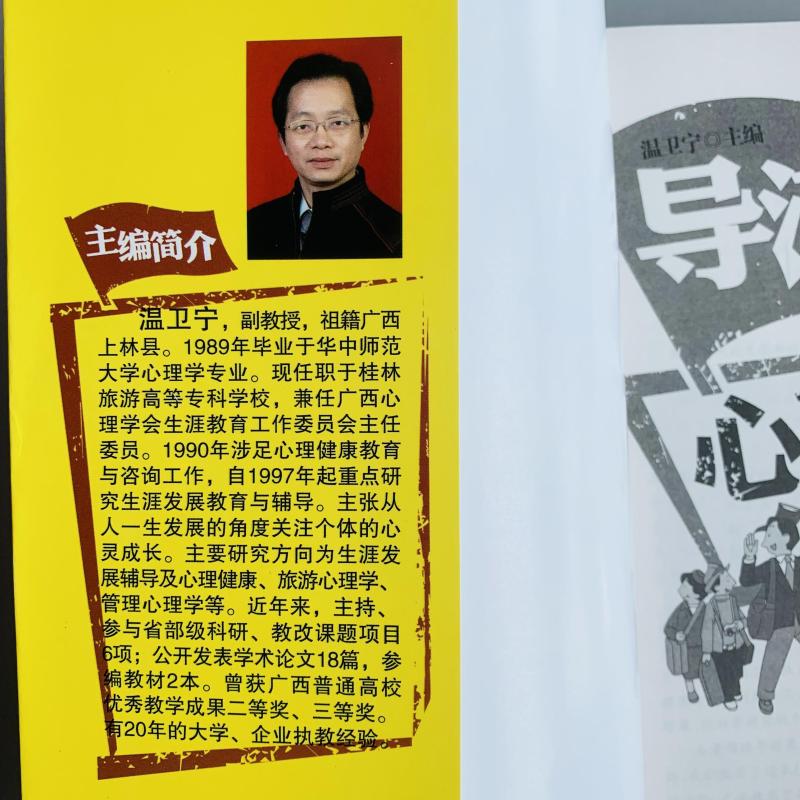 主编简介
温卫宁，副教授，祖籍广西
上林县。1989年毕业于华中师范
大学心理学专业。现任职于桂林
旅游高等专科学校，兼任广西心
理学会生涯教育工作委员会主任
委员。1990年涉足心理健康教育
与咨询工作，自1997年起重点研
究生涯发展教育与辅导。主张从
人一生发展的角度关注个体的心
灵成长。主要研究方向为生涯发
展辅导及心理健康、旅游心理学、
管理心理学等。近年来，主持、
参与省部级科研、教改课题项目
6项；公开发表学术论文18篇，参
编教材2本。曾获广西普通高校
优秀教学成果二等奖、三等奖。
有20年的大学、企业执教经验。
温卫宁◎主编
导
心